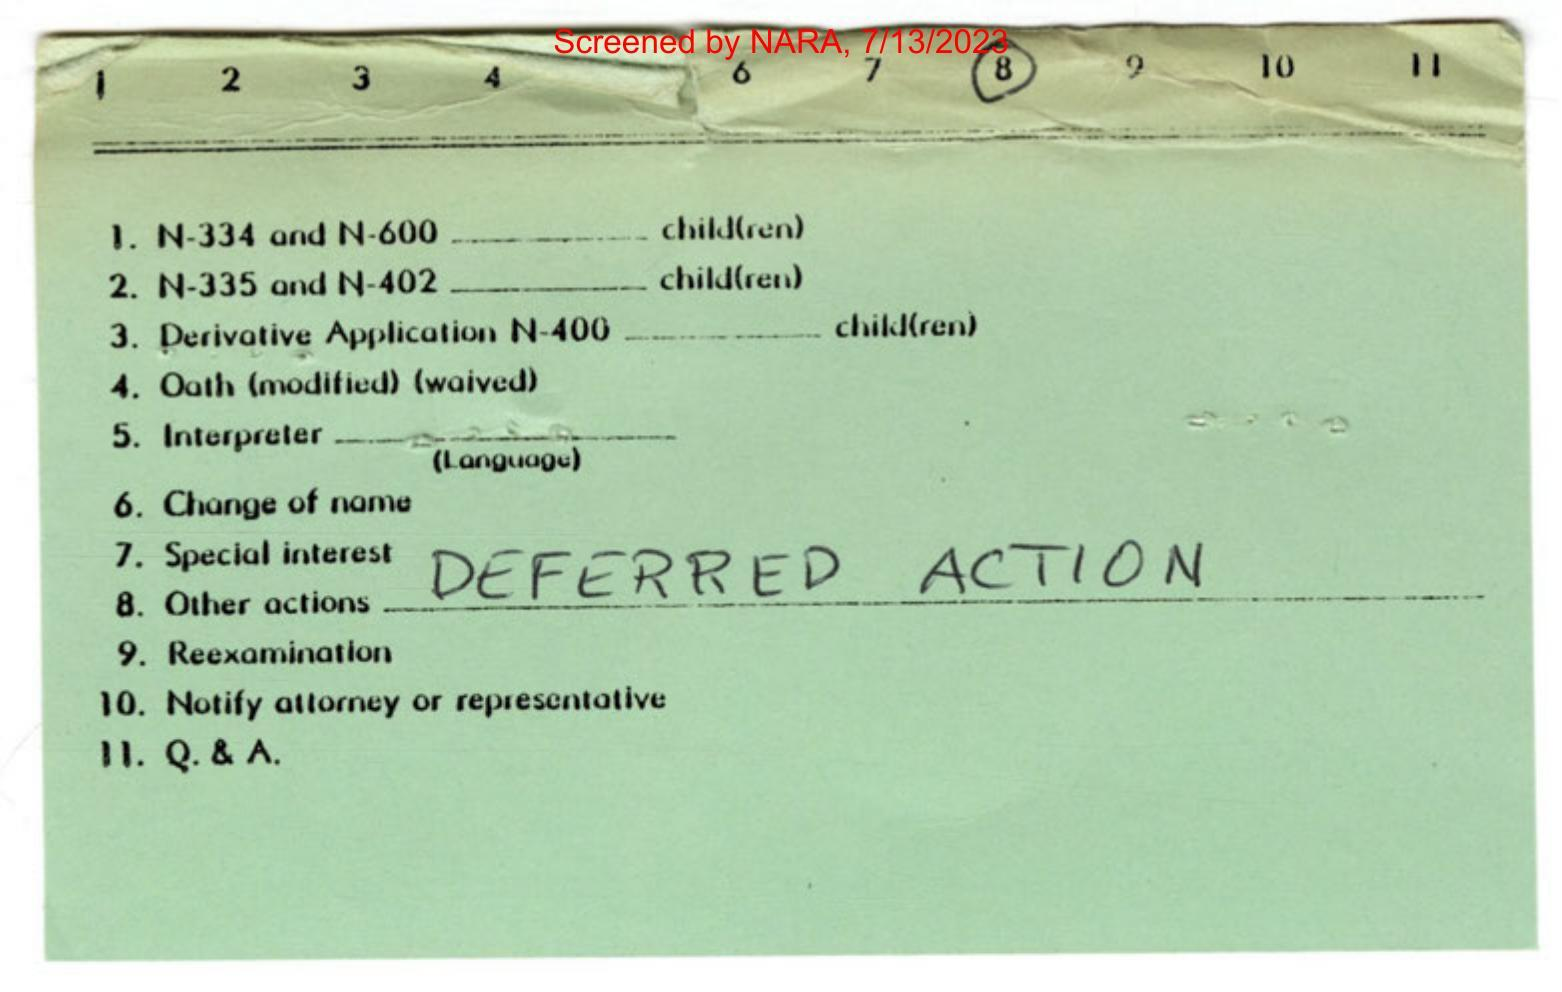 Screened by NARA, 7/13/2023
1 2 3 4 6 7 8 9 10 11
1. N-334 and N-600 __________ child(ren)
2. N-335 and N-402 __________ child(ren)
3. Derivative Application N-400 __________ child(ren)
4. Oath (modified) (waived)
5. Interpreter __________
(Language)
6. Change of name
7. Special interest
8. Other actions DEFERRED ACTION
9. Reexamination
10. Notify attorney or representative
11. Q. & A.